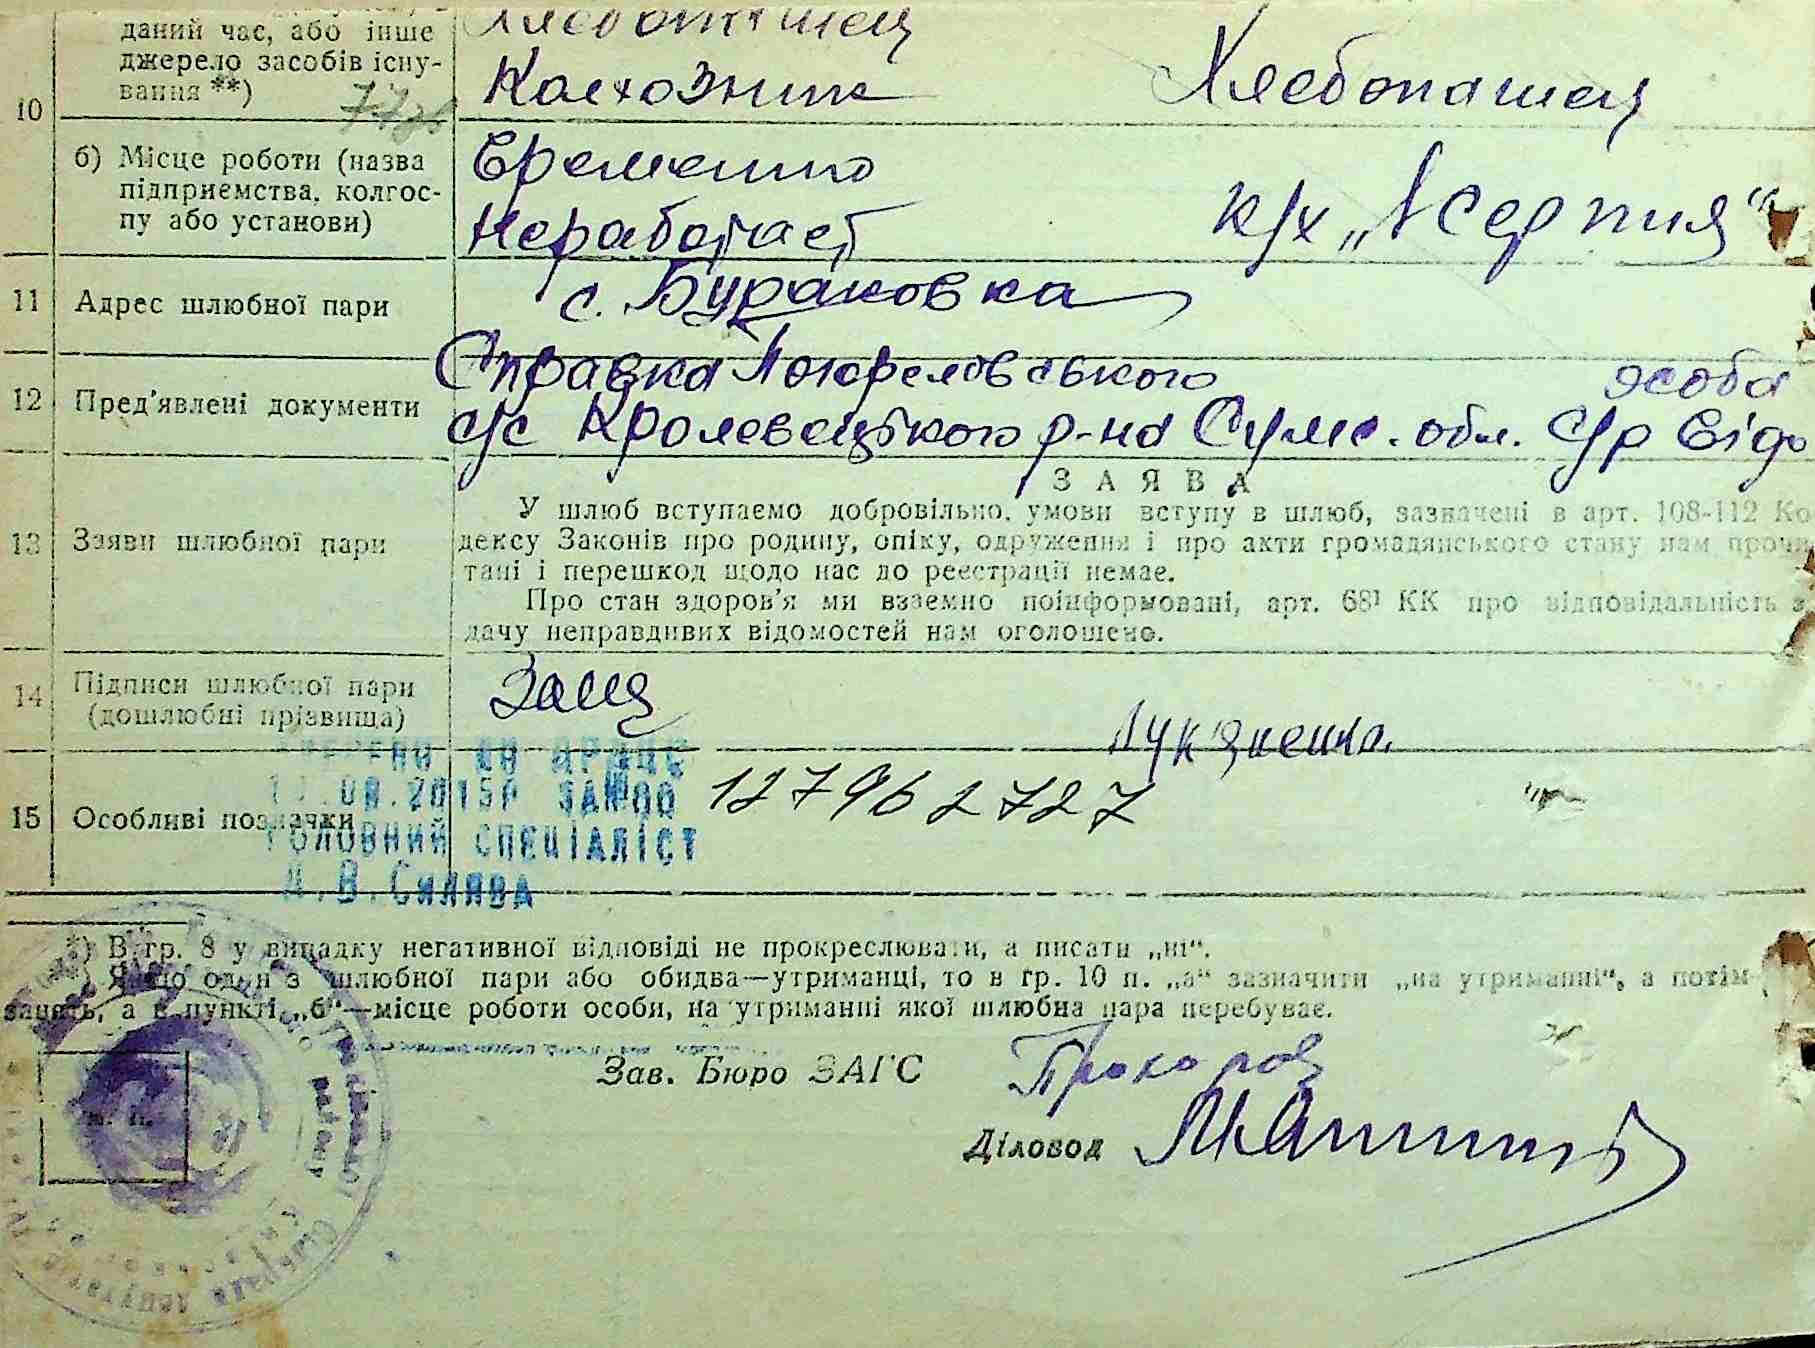 даний час, або інше
джерело засобів існу-
вання **)
Хлебопашец
Колхозник
Хлебопашец
10
б) Місце роботи (назва
підприємства, колгос-
пу або установи)
Еременко
Неработает
к/х „1 Серпня“
11 Адрес шлюбної пари
с. Бураковка
12 Пред'явлені документи
Справка Погореловського особа
с/с Кролевецького р-на Сумс. обл. с/р
13 Заяви шлюбної пари
ЗАЯВА
У шлюб вступаємо добровільно, умови вступу в шлюб, зазначені в арт. 108-112 Ко
дексу Законів про родину, опіку, одруження і про акти громадянського стану нам прочи
тані і перешкод щодо нас до реєстрації немає.
Про стан здоров'я ми взаємно поінформовані, арт. 68¹ КК про відповідальність за
дачу неправдивих відомостей нам оголошено.
14 Підписи шлюбної пари
(дошлюбні прізвища)
Заяц
Лук'яненко
15 Особливі позначки
127962727
.08.2015р
ГОЛОВНИЙ СПЕЦІАЛІСТ
В.Силява
*) В гр. 8 у випадку негативної відповіді не прокреслювати, а писати „ні“.
Якщо один з шлюбної пари або обидва—утриманці, то в гр. 10 п. „а“ зазначити „на утриманні“, а потім
занять, а в пункті „б“—місце роботи особи, на утриманні якої шлюбна пара перебуває.
Зав. Бюро ЗАГС
м. п.
Діловод